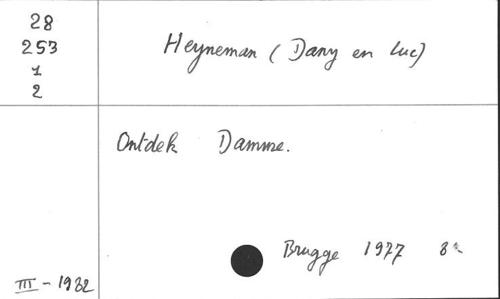 28
253
1
2
Heyneman (Dany en Luc)
Ontdek Damme.
Brugge 1977 8°
III - 1982